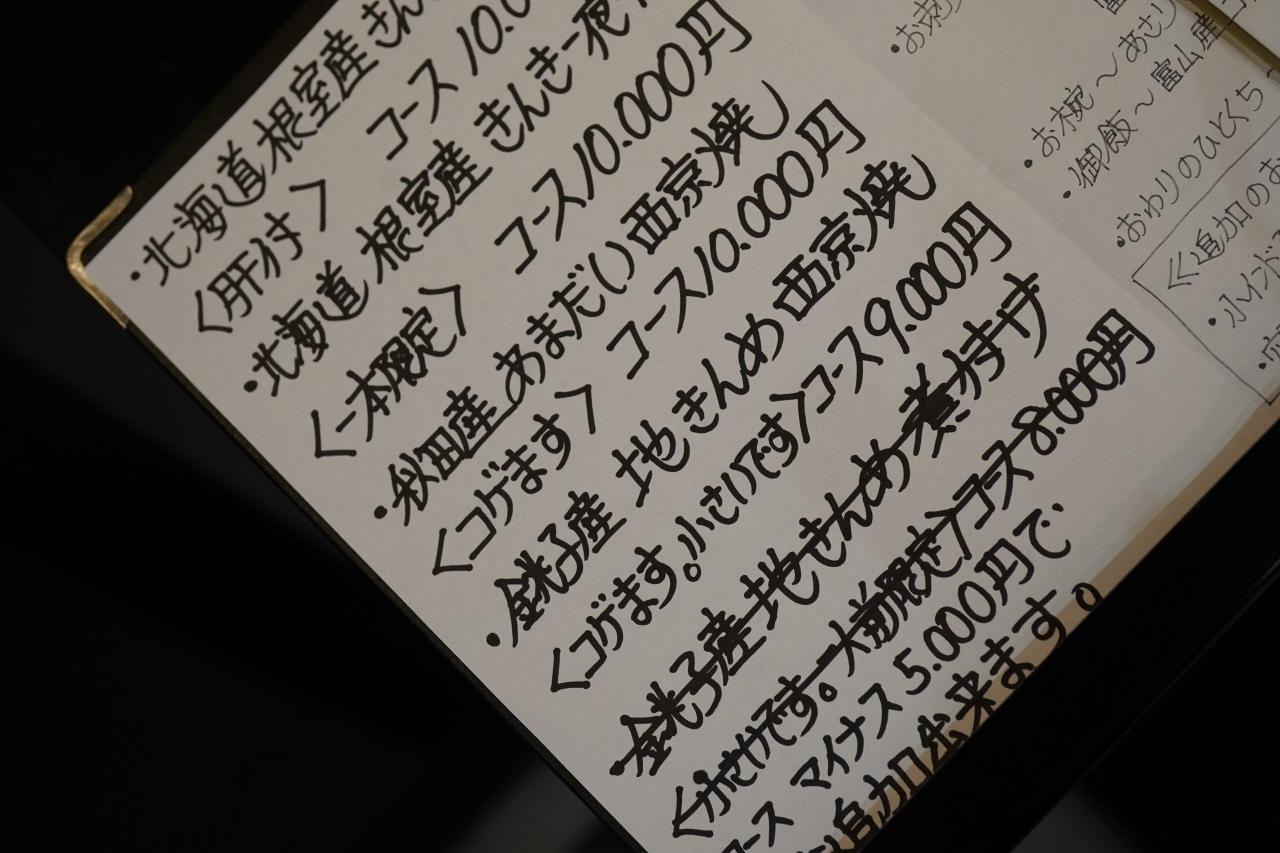 ・北海道根室産 きん
〈肝付〉 コース 10.0
・北海道 根室産 きんき一夜
〈一本限定〉 コース10.000円
・秋田産 あまだい西京焼
〈コゲます〉 コース10.000円
・銚子産 地きんめ西京焼
〈コゲます。小さいです〉コース9.000円
・銚子産地きんめ煮付け
〈小さいです。一人前限定〉コース8.000円
コース マイナス5.000円で
追加出来ます。
・お刺
・お椀〜あさり
・御飯〜富山産コ
・おゆりのひとくち
≪追加のお
・小インド